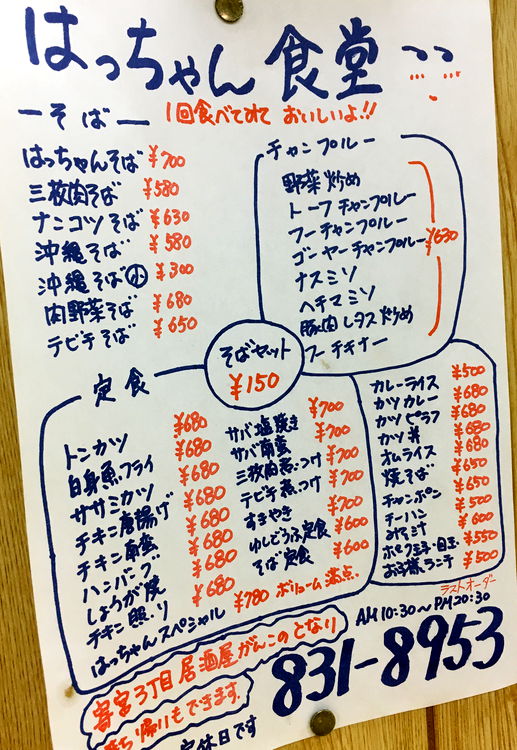 はっちゃん食堂
ーそばー 1回食べてみて おいしいよ!!
はっちゃんそば ¥700
三枚肉そば ¥580
ナンコツそば ¥630
沖縄そば ¥580
沖縄そば小 ¥300
肉野菜そば ¥680
テビチそば ¥650
チャンプルー
野菜炒め
トーフチャンプルー
フーチャンプルー
ゴーヤーチャンプルー
ナスミソ
ヘチマミソ
豚肉レタス炒め
フーチキナー
¥630
そばセット
¥150
定食
トンカツ ¥680
白身魚フライ ¥680
ササミカツ ¥680
チキン唐揚げ ¥680
チキン南蛮 ¥680
ハンバーグ ¥680
しょうが焼 ¥680
チキン照り ¥680
はっちゃんスペシャル ¥780 ボリューム満点
サバ塩焼き ¥700
サバ南蛮 ¥700
三枚肉煮つけ ¥700
テビチ煮つけ ¥700
すきやき ¥700
ゆしどうふ定食 ¥600
そば定食 ¥600
カレーライス ¥500
カツカレー ¥680
カツピラフ ¥680
カツ丼 ¥680
オムライス ¥680
焼そば ¥650
チャンポン ¥650
チーハン ¥500
みそ汁 ¥600
ポーク玉子・目玉 ¥550
お子様ランチ ¥500
ラストオーダー
AM10:30〜PM20:30
寄宮3丁目居酒屋がんこのとなり
831-8953
持ち帰りもできます
定休日です